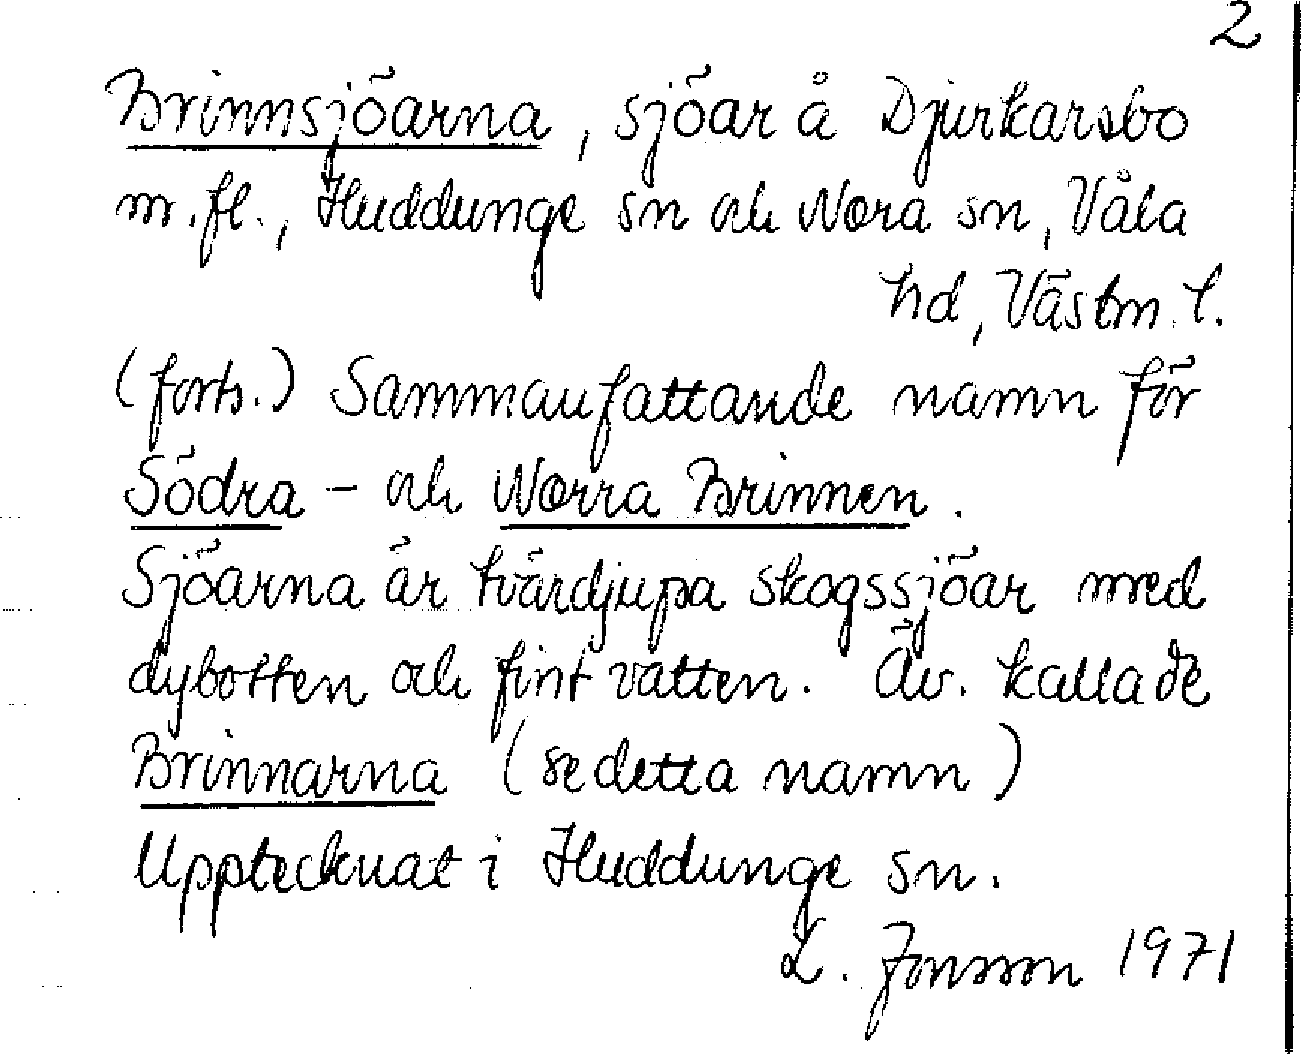 2
Brinnsjöarna, sjöar å Djurkarsbo
m.fl., Huddunge sn och Nora sn, Våla
hd, Västm. l.
(forts.) Sammanfattande namn för
Södra - och Norra Brinnen.
Sjöarna är tvärdjupa skogssjöar med
dybotten och fint vatten. Äv. kallade
Brinnarna (se detta namn)
Upptecknat i Huddunge sn.
L. Jonsson 1971